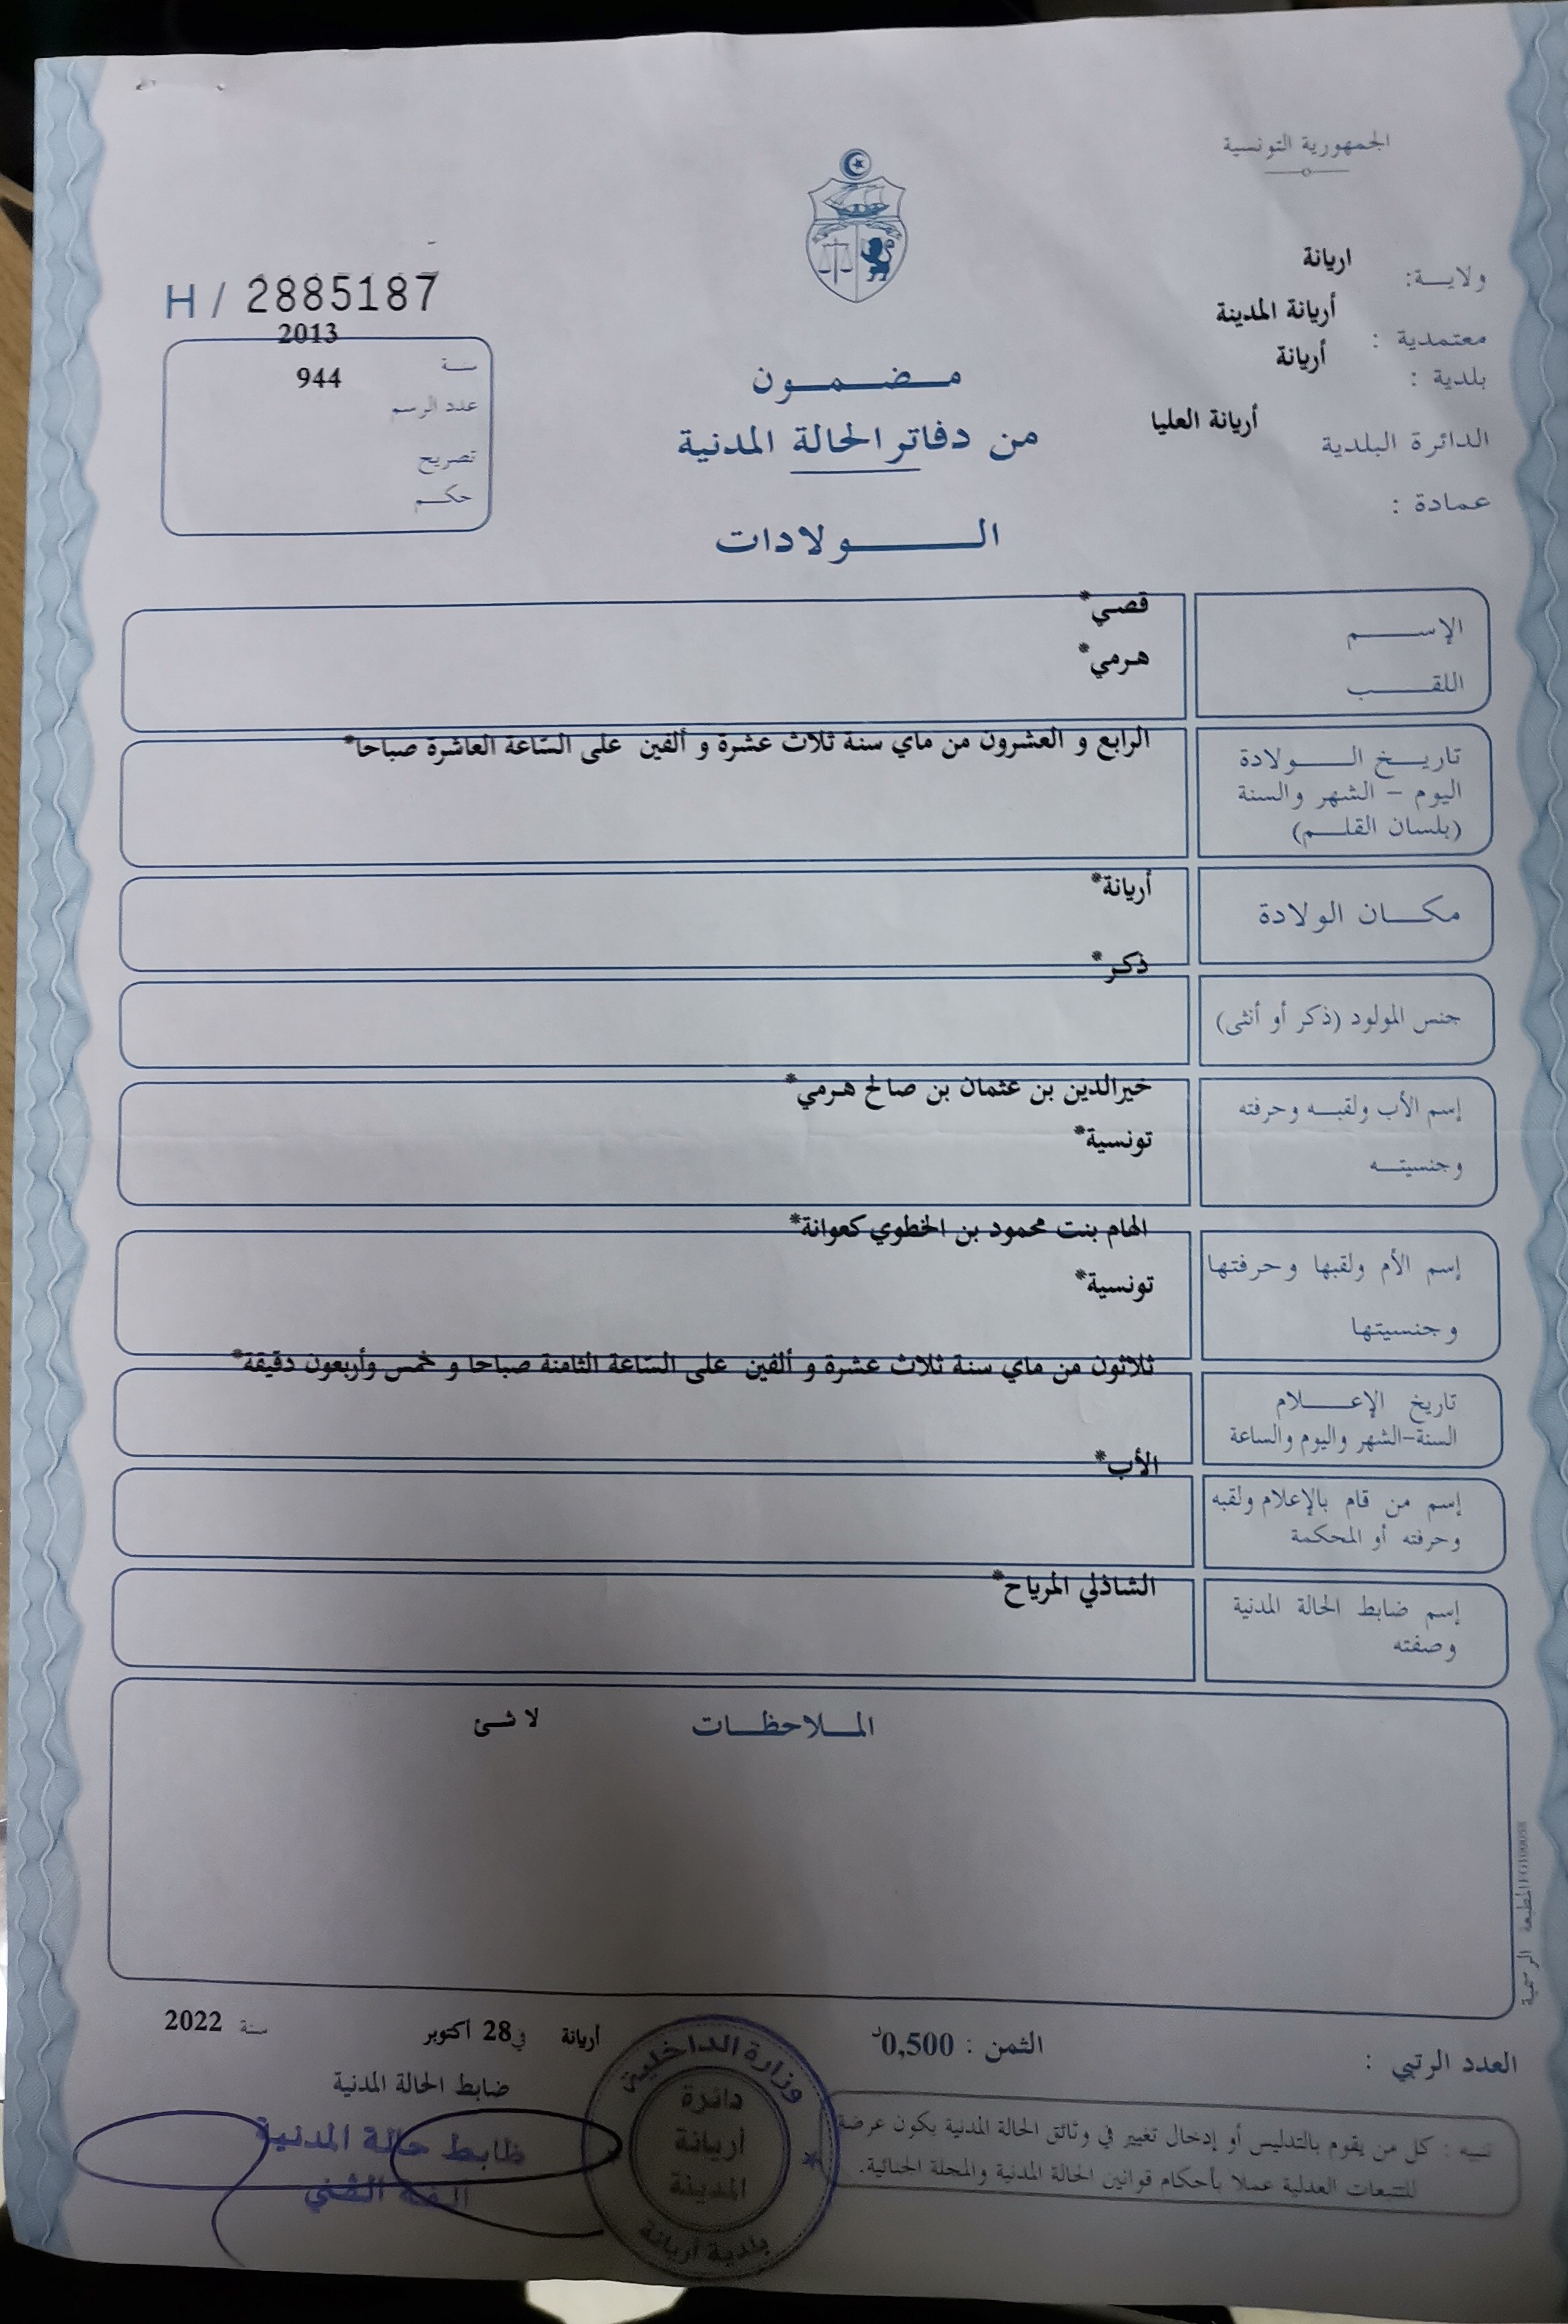 الجمهورية التونسية
ولايـــة: اريانة
معتمدية : أريانة المدينة
بلدية : أريانة
الدائرة البلدية أريانة العليا
عمادة :
H / 2885187
سنة 2013
عدد الرسم 944
تصريح
حكم
مضمون
من دفاتر الحالة المدنية
الولادات
الإسم قصي*
اللقب هرمي*
تاريخ الولادة
اليوم - الشهر والسنة
(بلسان القلم)
الرابع و العشرون من ماي سنة ثلاث عشرة و ألفين على الساعة العاشرة صباحا*
مكان الولادة أريانة*
جنس المولود (ذكر أو أنثى) ذكر*
إسم الأب ولقبه وحرفته خيرالدين بن عثمان بن صالح هرمي*
وجنسيته تونسية*
إسم الأم ولقبها وحرفتها الهام بنت محمود بن الخطوي كعوانة*
وجنسيتها تونسية*
تاريخ الإعلام
السنة-الشهر واليوم والساعة
ثلاثون من ماي سنة ثلاث عشرة و ألفين على الساعة الثامنة صباحا و خمس وأربعون دقيقة*
إسم من قام بالإعلام ولقبه
وحرفته أو المحكمة
الأب*
إسم ضابط الحالة المدنية
وصفته
الشاذلي المرياح*
الملاحظات لا شئ
المطبعة الرسمية
العدد الرتبي :
الثمن : 0,500د
أريانة في 28 اكتوبر سنة 2022
ضابط الحالة المدنية
ضابط حالة المدنية
وزارة الداخلية
دائرة
اريانة
المدينة
بلدية أريانة
تنبيه : كل من يقوم بالتدليس أو إدخال تغيير في وثائق الحالة المدنية يكون عرضة
للتتبعات العدلية عملا بأحكام قوانين الحالة المدنية والمجلة الجنائية.